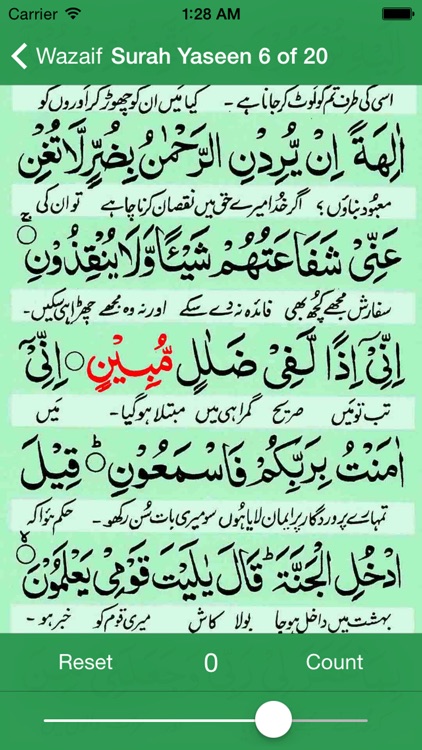 Carrier 1:28 AM
Wazaif Surah Yaseen 6 of 20
اسی کی طرف تم کو لوٹ کر جانا ہے - کیا میں ان کو چھوڑ کر اوروں کو
اٰلِهَةً اِنْ یُّرِدْنِ الرَّحْمٰنُ بِضُرٍّ لَّا تُغْنِ
معبود بناؤں ؟ اگر خدا میرے حق میں نقصان کرنا چاہے تو ان کی
عَنِّیْ شَفَاعَتُهُمْ شَیْـًٔا وَّلَا یُنْقِذُوْنِ ۚ
سفارش مجھے کچھ بھی فائدہ نہ دے سکے اور نہ وہ مجھے چھڑا ہی سکیں -
اِنِّیْۤ اِذًا لَّفِیْ ضَلٰلٍ مُّبِیْنٍ ۝ اِنِّیْۤ
تب تو میں صریح گمراہی میں مبتلا ہو گیا - میں
اٰمَنْتُ بِرَبِّكُمْ فَاسْمَعُوْنِ ۝ؕ قِیْلَ
تمہارے پروردگار پر ایمان لایا ہوں سو میری بات سن رکھو - حکم ہوا کہ
ادْخُلِ الْجَنَّةَ ؕ قَالَ یٰلَیْتَ قَوْمِیْ یَعْلَمُوْنَ ۝ۙ
بہشت میں داخل ہو جا بولا کاش میری قوم کو خبر ہو -
Reset 0 Count